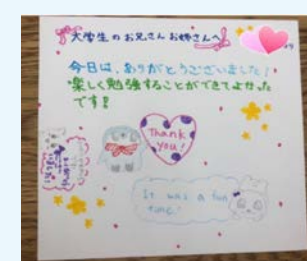 大学生のお兄さんお姉さんへ
今日は、ありがとうございました!
楽しく勉強することができてよかった
です!
Thank
you!
It was a fun
time!